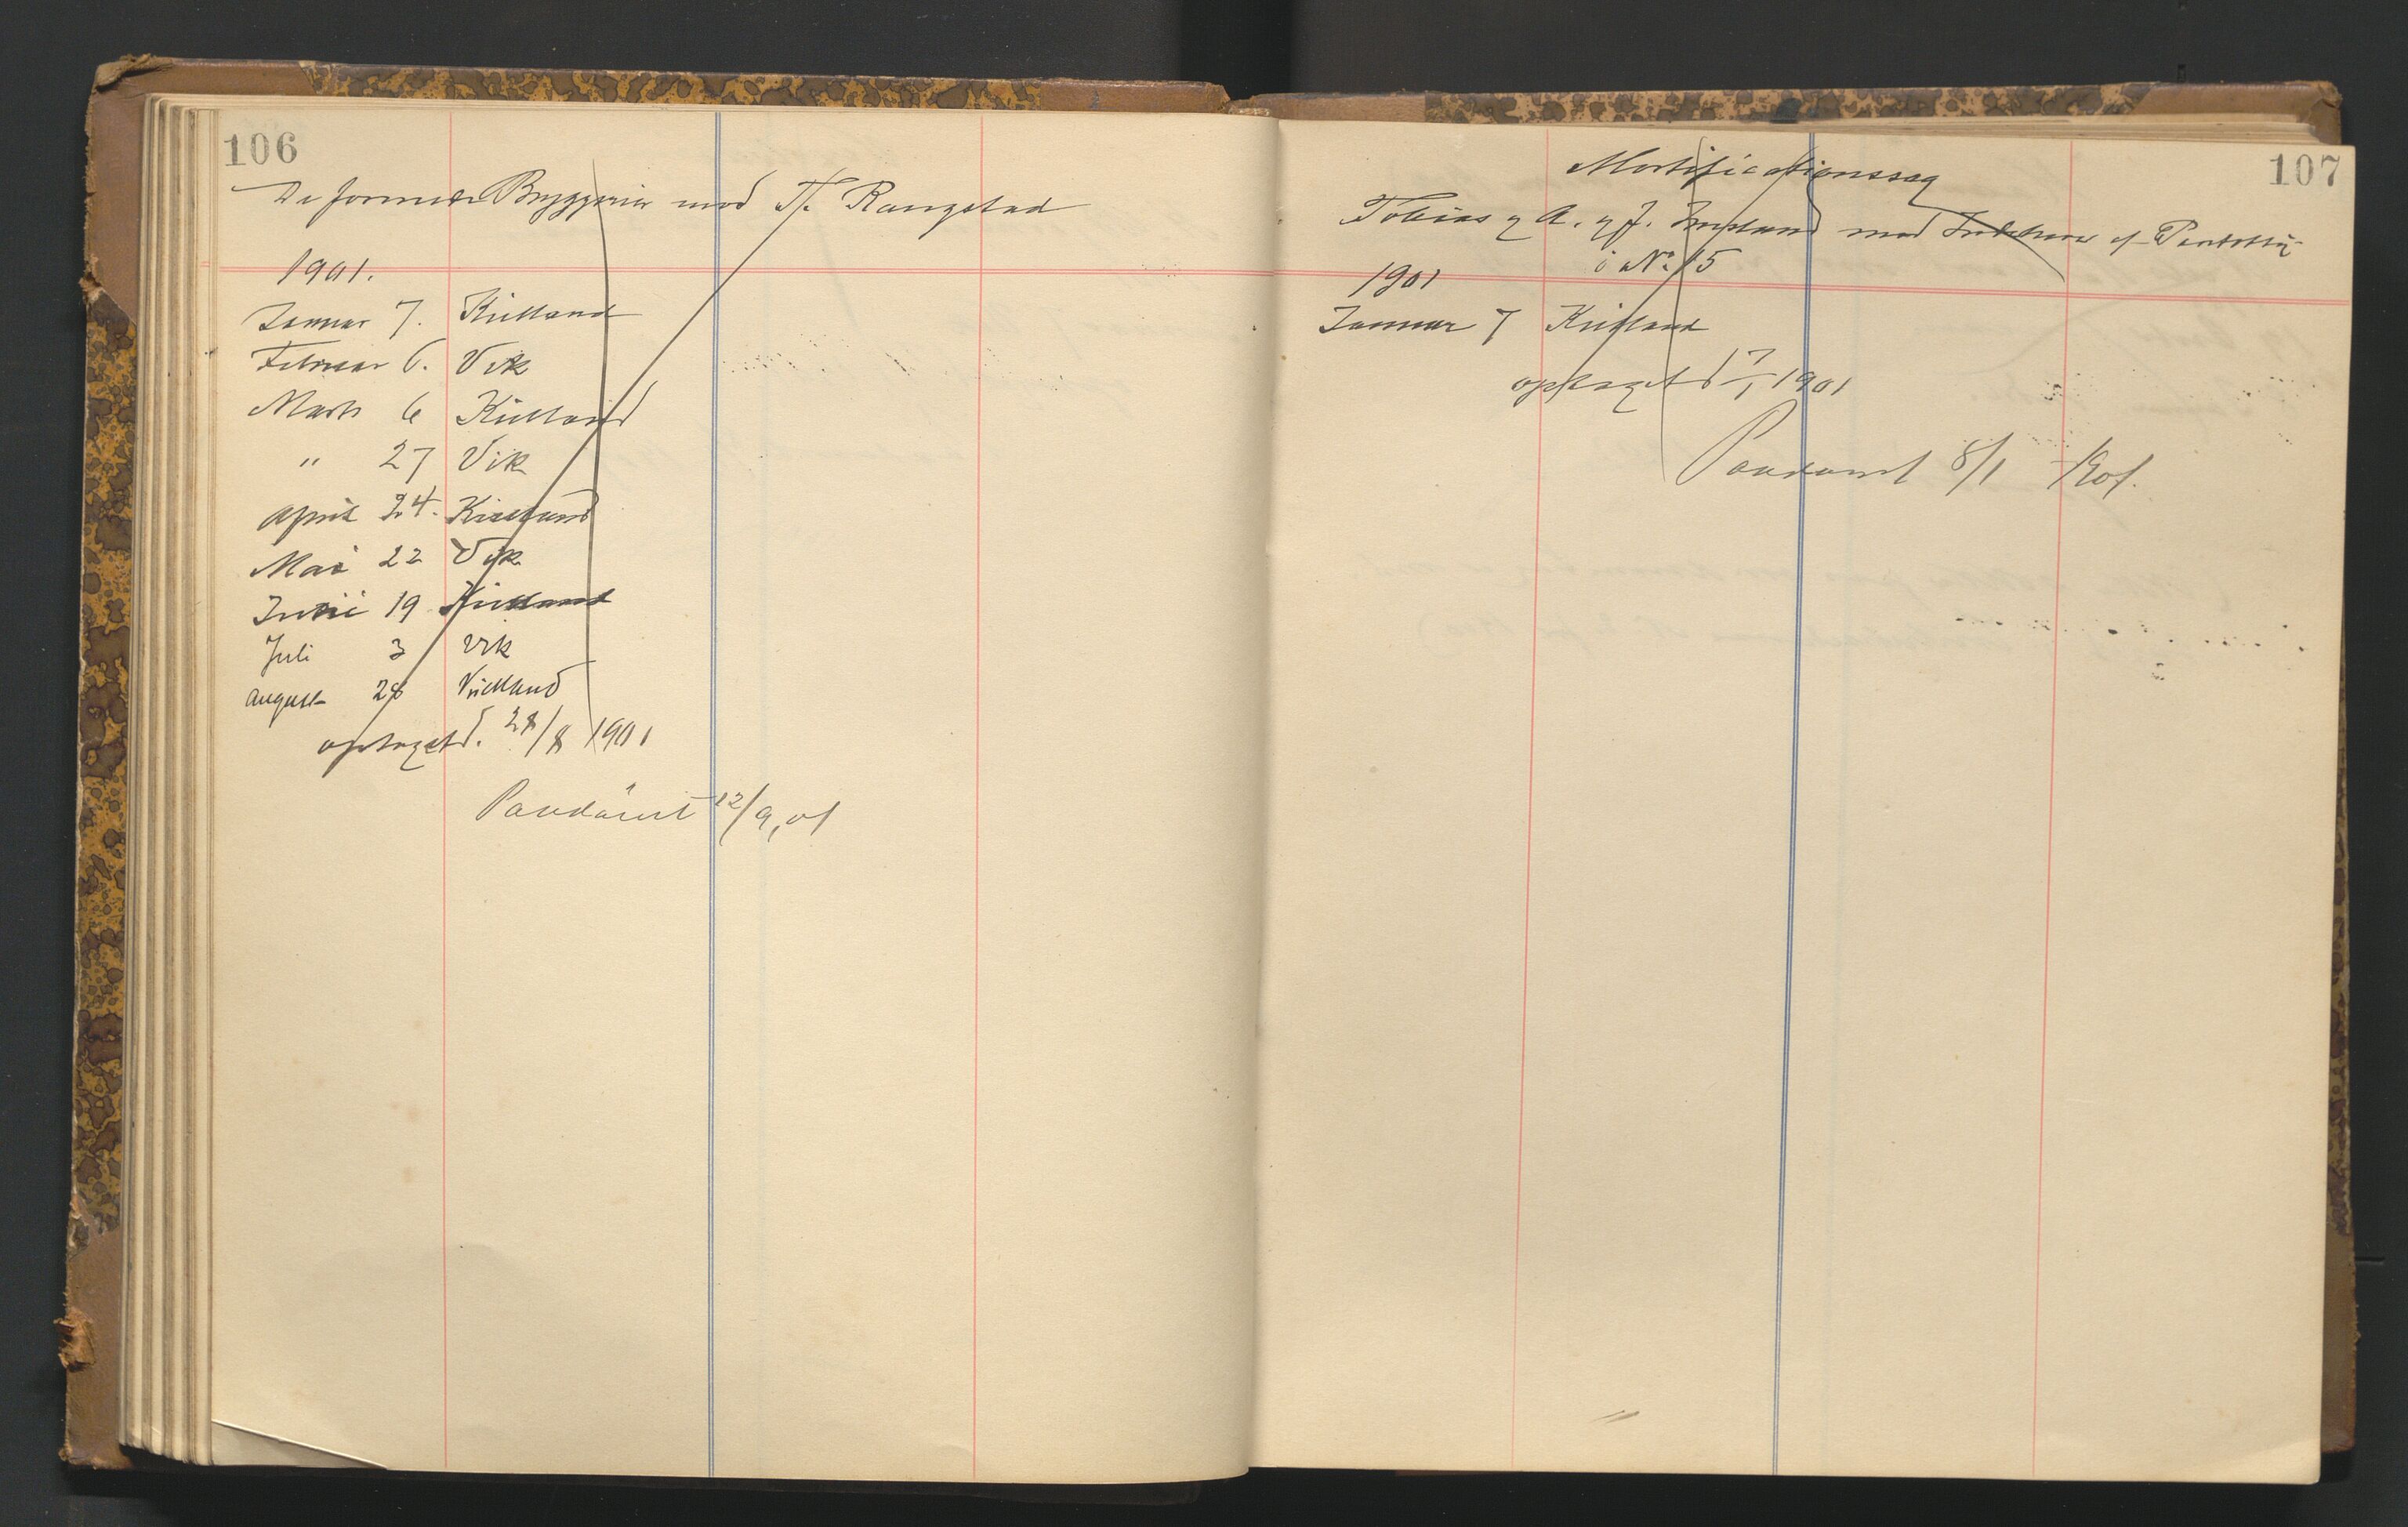 106
De forenede Bryggerier mod Th. Rangstad
1901.
Januar 7. Kielland
Februar 6. Vik
Marts 6 Kielland
" 27 Vik
April 24. Kielland
Mai 22 Vik
Juni 19 Kielland
Juli 3 Vik
August 28 Kielland
optaget d. 28/8 1901
Paadømt 12/9, 01
107
Mortificationssag
Tobias g A. g J. mod Indehaver af
i No. 15
1901
Januar 7 Kielland
optaget d 7/1 1901
Paadømt 8/1 1901.